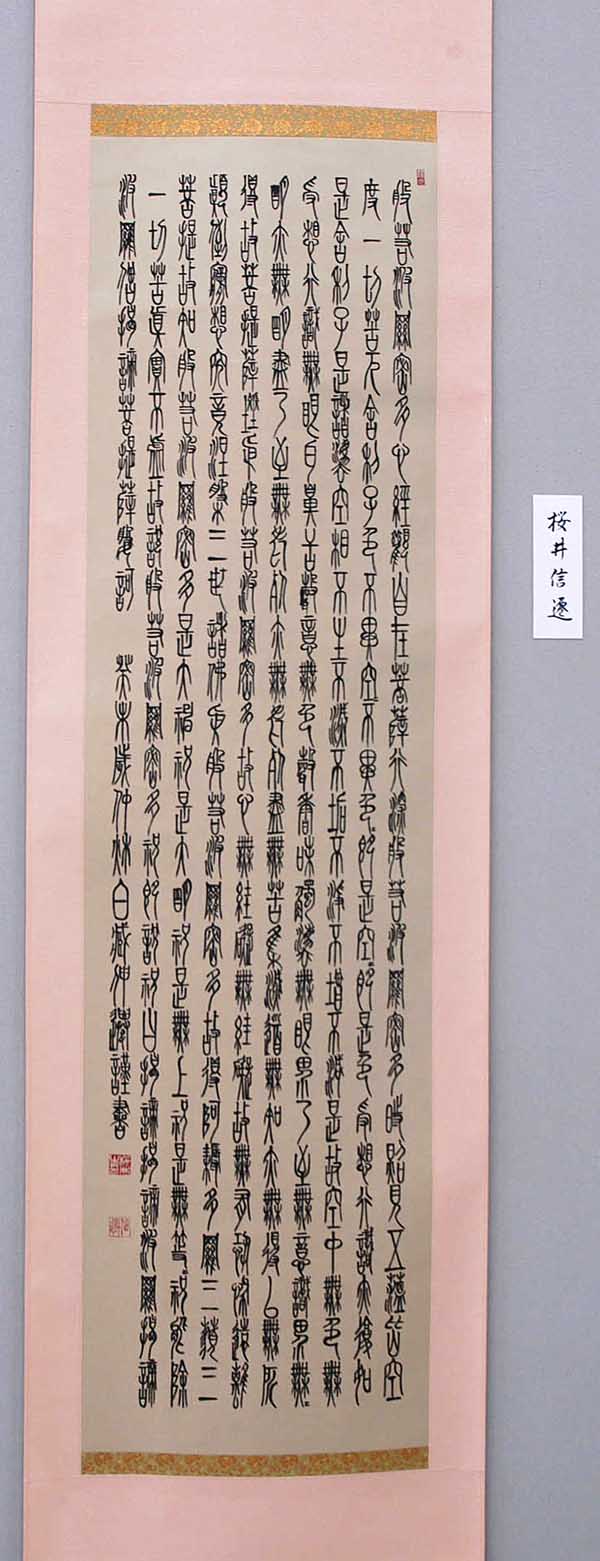 般若波羅密多心經觀自在菩薩行深般若波羅密多時照見五蘊皆空
度一切苦厄舍利子色不異空不異色即是空即是色受想行識亦復如
是舍利子是諸法空相不生不滅不垢不淨不增不減是故空中無色無
受想行識無眼耳鼻舌身意無色聲香味觸法無眼界乃至無意識界無
明亦無明盡乃至無老死亦無老死盡無苦集滅道無知亦無得以無所
得故菩提薩埵依般若波羅密多故心無絓礙無絓礙故無有恐怖遠離
顛倒夢想究竟涅槃三世諸佛依般若波羅密多故得阿耨多羅三藐三
菩提故知般若波羅密多是大神祝是大明祝是無上祝是無等祝能除
一切苦真實不虛故說般若波羅密多祝即說祝曰揭諦揭諦波羅揭諦
波羅僧揭諦菩提薩婆訶 癸未歲仲秋 謹書
桜井信